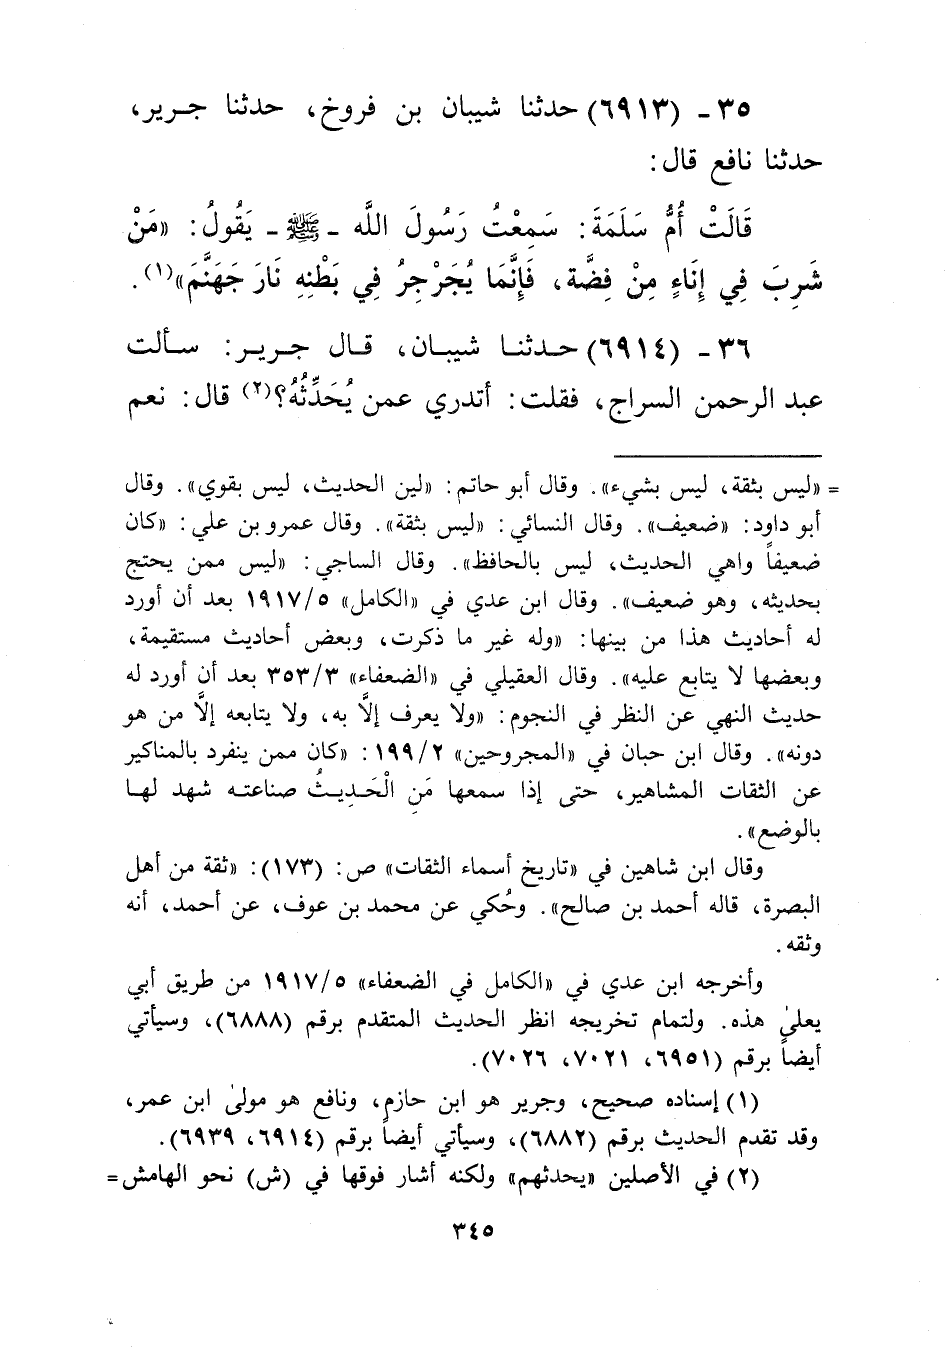 ٣٥ - (٦٩١٣) حدثنا شيبان بن فروخ، حدثنا جرير،
حدثنا نافع قال:
قَالَتْ أُمُّ سَلَمَةَ: سَمِعْتُ رَسُولَ اللَّه - ﷺ - يَقُولُ: «مَنْ
شَرِبَ فِي إِنَاءٍ مِنْ فِضَّة، فَإِنَّمَا يُجَرْجِرُ فِي بَطْنِهِ نَارَ جَهَنَّمَ»(١).
٣٦ - (٦٩١٤) حدثنا شيبان، قال جرير: سألت
عبد الرحمن السراج، فقلت: أتدري عمن يُحَدِّثُهُ؟(٢) قال: نعم
= «ليس بثقة، ليس بشيء». وقال أبو حاتم: «لين الحديث، ليس بقوي». وقال
أبو داود: «ضعيف». وقال النسائي: «ليس بثقة». وقال عمرو بن علي: «كان
ضعيفاً واهي الحديث، ليس بالحافظ». وقال الساجي: «ليس ممن يحتج
بحديثه، وهو ضعيف». وقال ابن عدي في «الكامل» ١٩١٧/٥ بعد أن أورد
له أحاديث هذا من بينها: «وله غير ما ذكرت، وبعض أحاديث مستقيمة،
وبعضها لا يتابع عليه». وقال العقيلي في «الضعفاء» ٣٥٣/٣ بعد أن أورد له
حديث النهي عن النظر في النجوم: «ولا يعرف إلاَّ به، ولا يتابعه إلاَّ من هو
دونه». وقال ابن حبان في «المجروحين» ١٩٩/٢: «كان ممن ينفرد بالمناكير
عن الثقات المشاهير، حتى إذا سمعها مَنِ الْحَدِيثُ صناعته شهد لها
بالوضع».
وقال ابن شاهين في «تاريخ أسماء الثقات» ص: (١٧٣): «ثقة من أهل
البصرة، قاله أحمد بن صالح». وحُكي عن محمد بن عوف، عن أحمد، أنه
وثقه.
وأخرجه ابن عدي في «الكامل في الضعفاء» ١٩١٧/٥ من طريق أبي
يعلىٰ هذه. ولتمام تخريجه انظر الحديث المتقدم برقم (٦٨٨٨)، وسيأتي
أيضاً برقم (٦٩٥١، ٧٠٢١، ٧٠٢٦).
(١) إسناده صحيح، وجرير هو ابن حازم، ونافع هو مولىٰ ابن عمر،
وقد تقدم الحديث برقم (٦٨٨٢)، وسيأتي أيضاً برقم (٦٩١٤، ٦٩٣٩).
(٢) في الأصلين «يحدثهم» ولكنه أشار فوقها في (ش) نحو الهامش =
٣٤٥